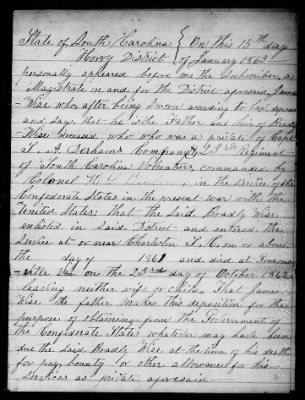 State of South Carolina { On this 13th day
Horry District { of January 1863
personally appeared before me the Subscriber, a
Magistrate in and for the District aforesaid, James
Wise who after being sworn according to law deposes
and says, that he is the father and heir of Bradly
Wise deceased who was a private of Capt
S. A. Derham Company 23rd Regiment
of South Carolina Volunteers, commanded by
Colonel H. L. in the service of the
Confederate States in the present war with the
United States; that the Said Bradly Wise
enlisted in Said District and entered the
Service at or near Charleston S. C. on or about
the day of 1861 and died at
ville Va. on the 23rd day of October 1862
leaving neither wife or Child. That James
Wise the father makes this deposition for the
purpose of obtaining from the Government of
the Confederate States whatever may have been
due the Said Bradly Wise at the time of his death
for pay, bounty or other allowances for his
Services as private aforesaid